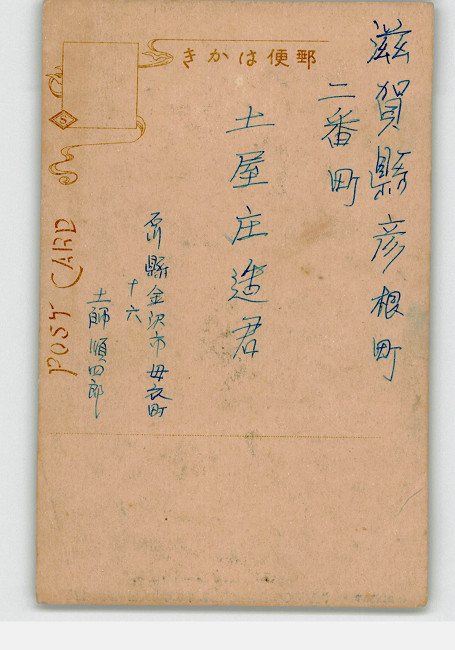 郵便はかき
滋賀縣彦根町
二番町
土屋庄造君
石川縣金沢市母衣町
十六
土師順四郎
POST CARD
S